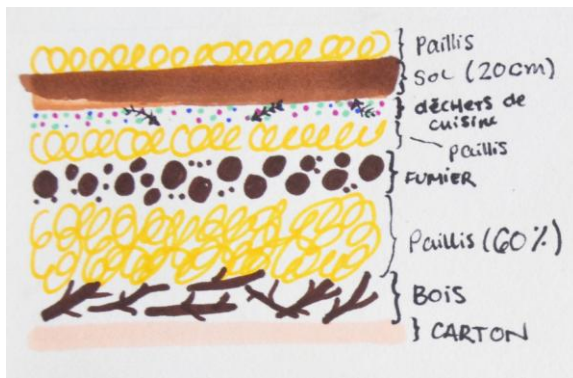 Paillis
SOL (20cm)
DÉCHETS DE
CUISINE
paillis
FUMIER
Paillis (60%)
BOIS
CARTON